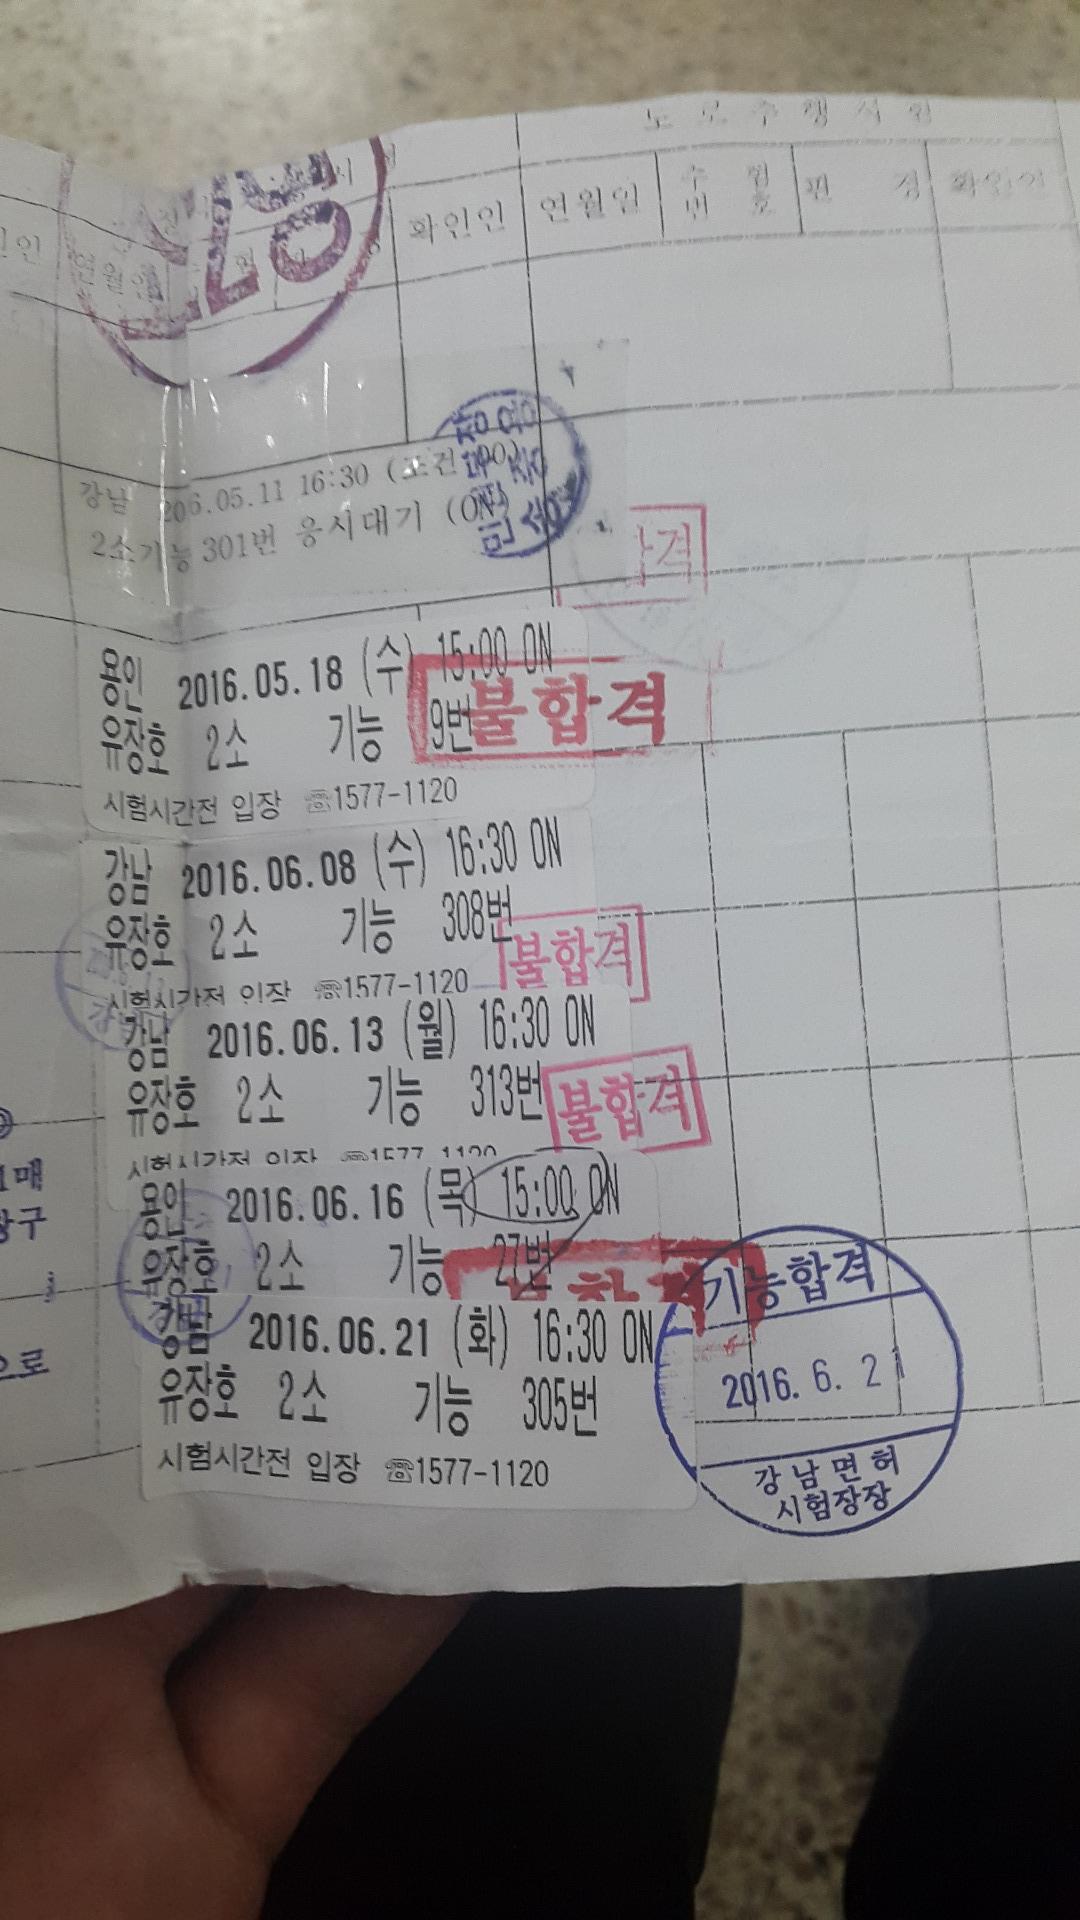 도로주행시험
확인인 연월일 수험번호 판정 확인인
강남 16:30
2소기능 301번 응시대기 (ON)
합격
용인 2016.05.18 (수) 15:00 ON
유장호 2소 기능 9번
불합격
시험시간전 입장 ☏1577-1120
강남 2016.06.08 (수) 16:30 ON
유장호 2소 기능 308번
불합격
시험시간전 입장 ☏1577-1120
강남 2016.06.13 (월) 16:30 ON
유장호 2소 기능 313번
불합격
시험시간전 입장 ☏1577-1120
용인 2016.06.16 (목) 15:00 ON
유장호 2소 기능 27번
강남 2016.06.21 (화) 16:30 ON
유장호 2소 기능 305번
시험시간전 입장 ☏1577-1120
기능합격
2016. 6. 21
강남면허
시험장장
1매
으로